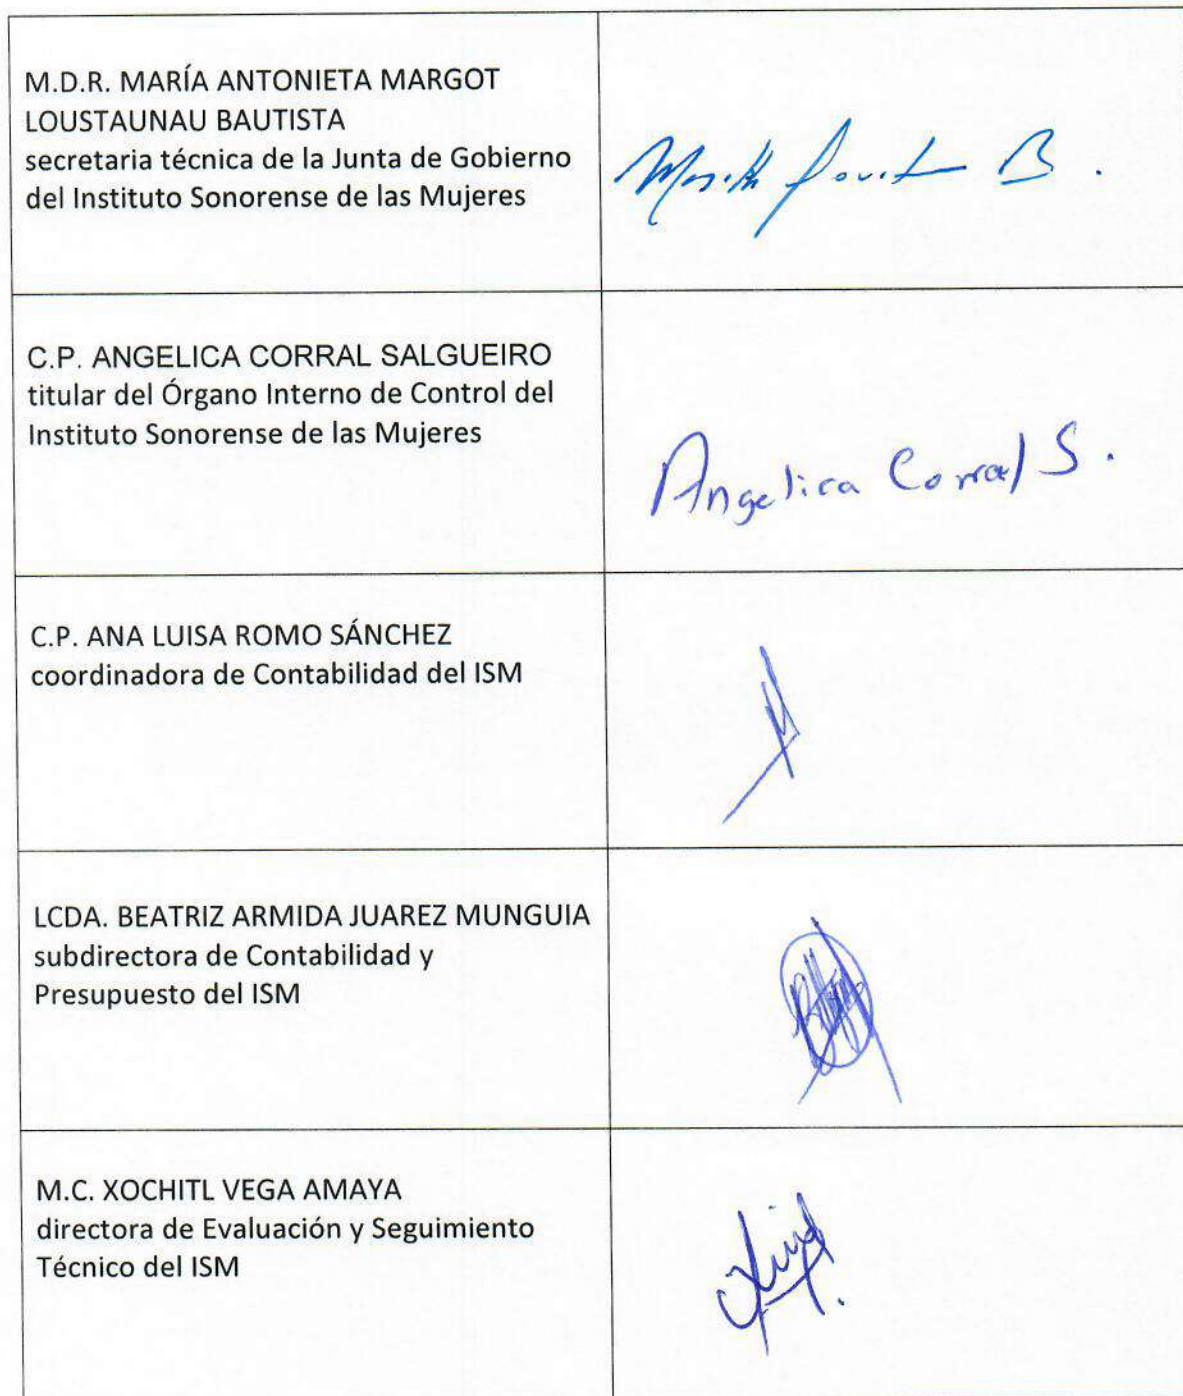 M.D.R. MARÍA ANTONIETA MARGOT
LOUSTAUNAU BAUTISTA
secretaria técnica de la Junta de Gobierno
del Instituto Sonorense de las Mujeres
B.
C.P. ANGELICA CORRAL SALGUEIRO
titular del Órgano Interno de Control del
Instituto Sonorense de las Mujeres
Angelica Corral S.
C.P. ANA LUISA ROMO SÁNCHEZ
coordinadora de Contabilidad del ISM
LCDA. BEATRIZ ARMIDA JUAREZ MUNGUIA
subdirectora de Contabilidad y
Presupuesto del ISM
M.C. XOCHITL VEGA AMAYA
directora de Evaluación y Seguimiento
Técnico del ISM